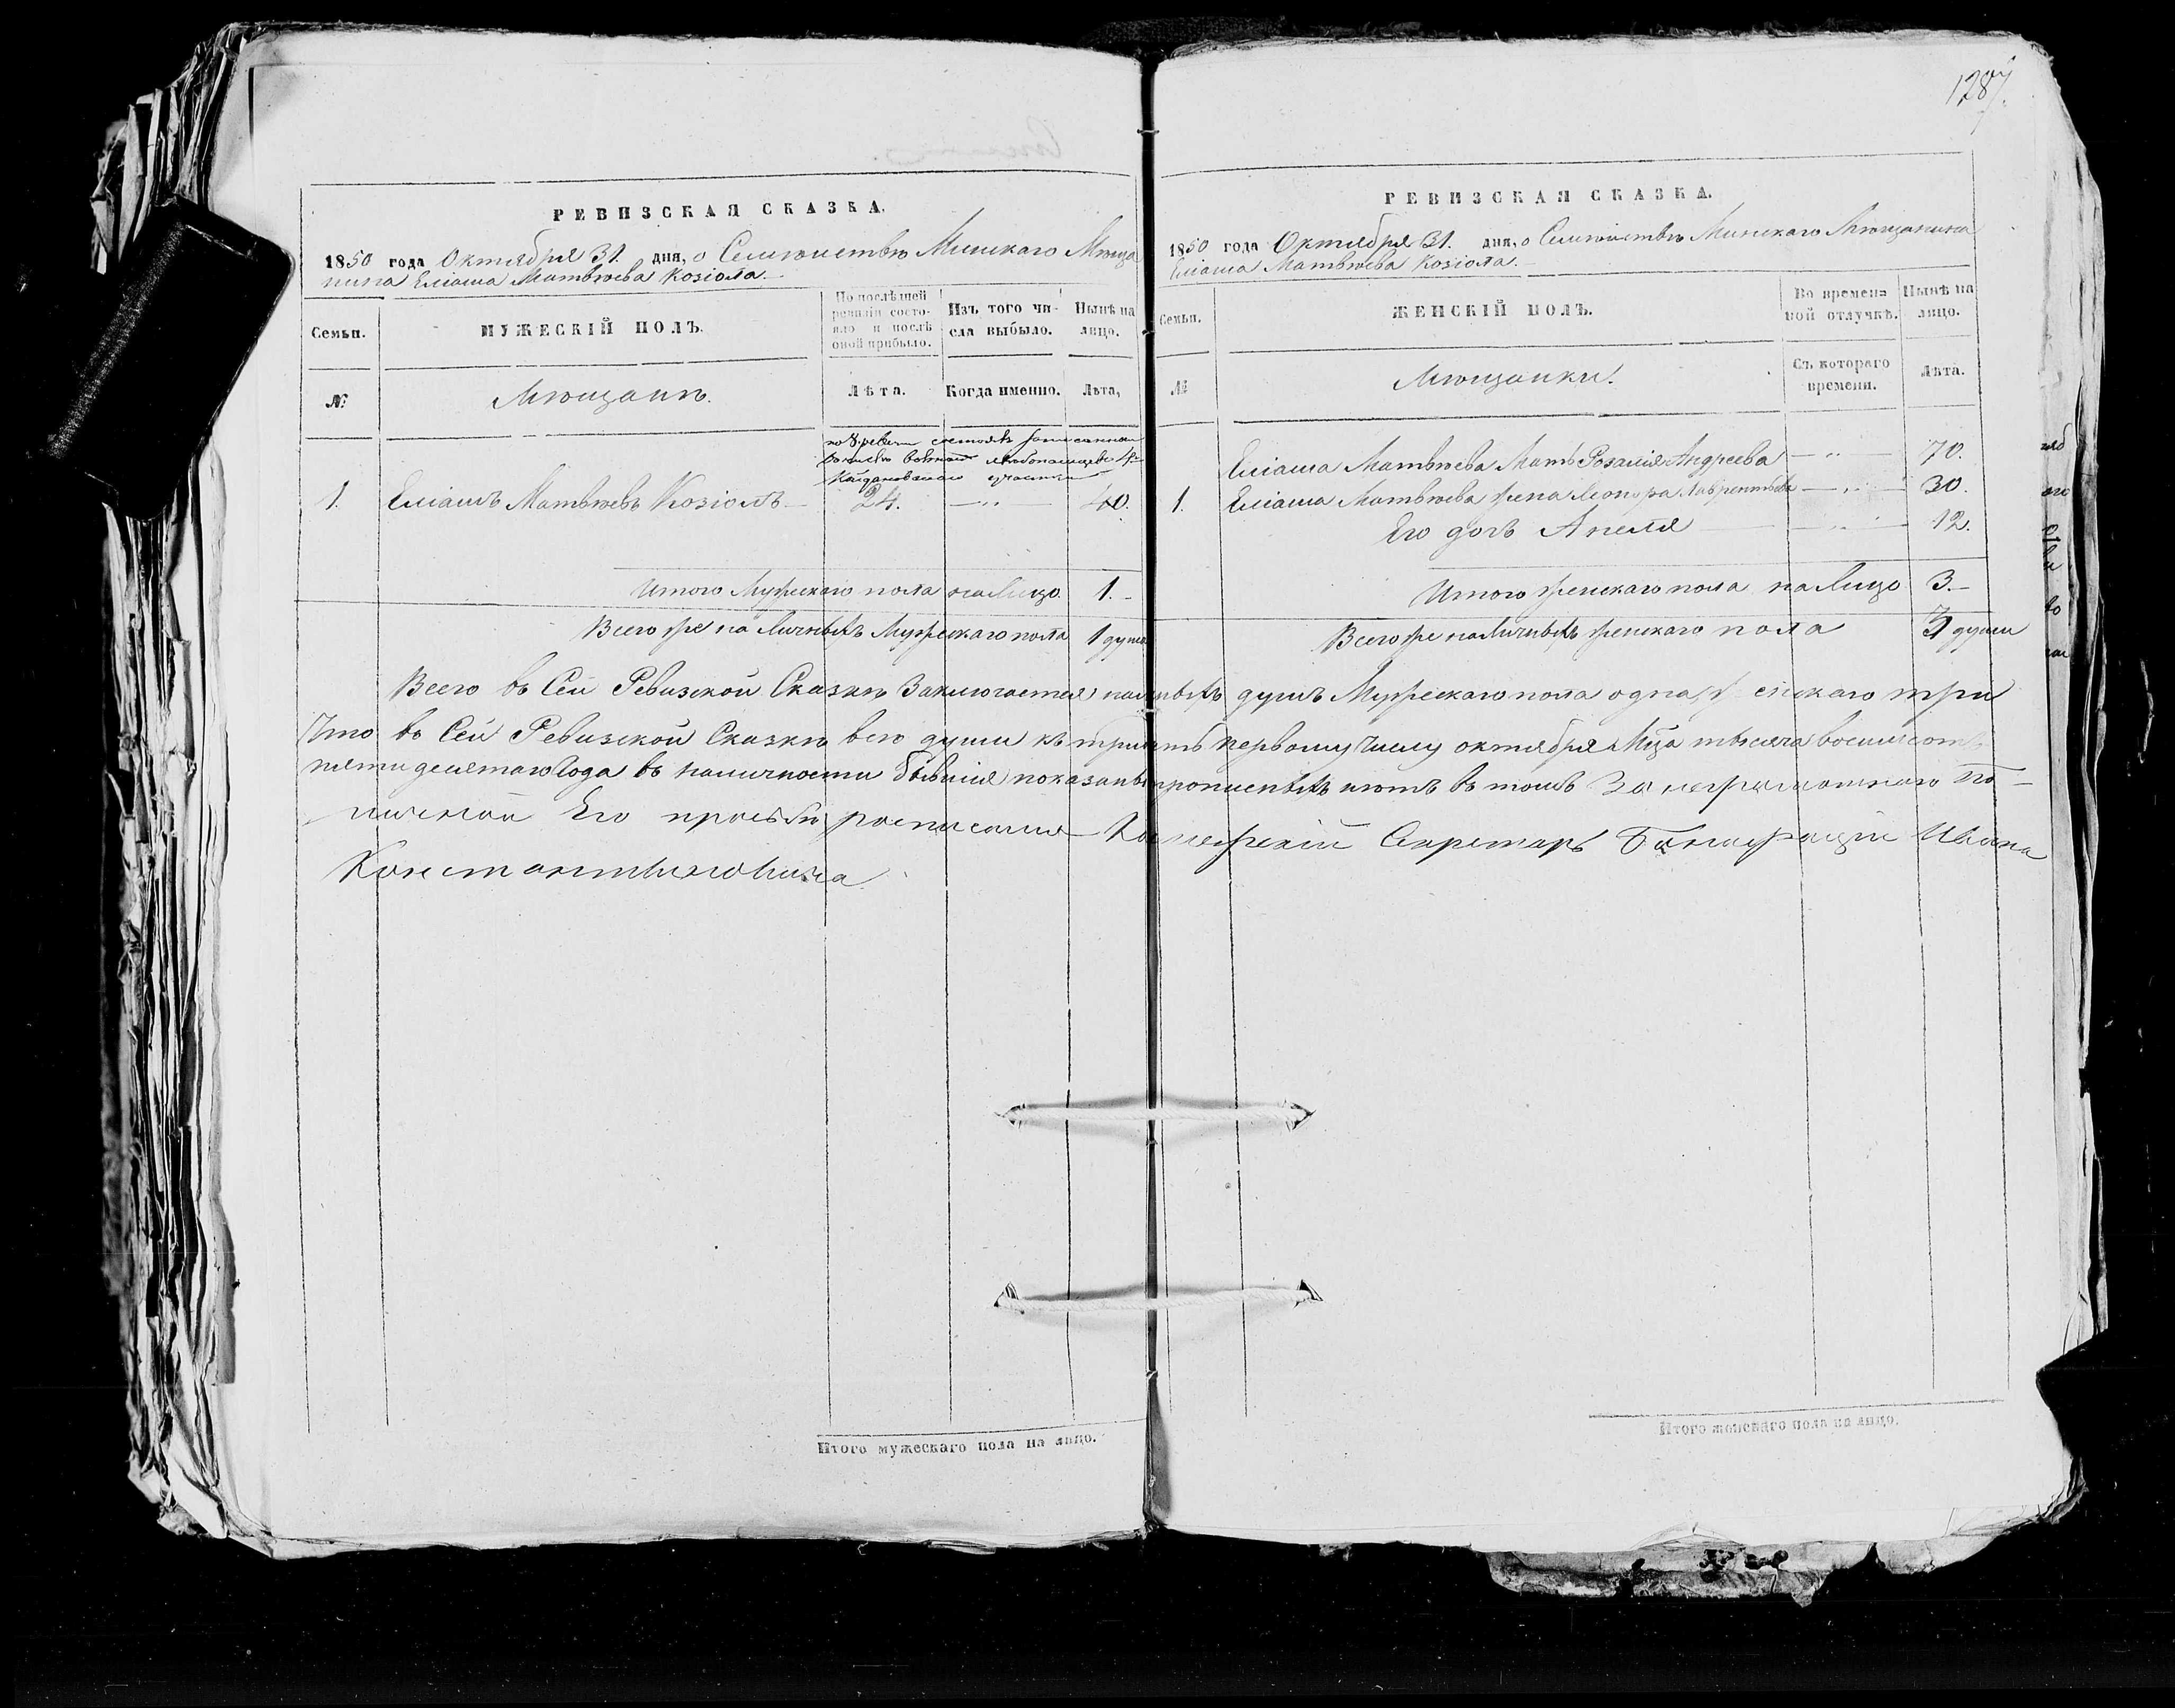 РЕВИЗСКАЯ СКАЗКА.
1850 года Октября 31. дня, о Семѣйствѣ Минскаго Мѣща
нина Еліаша Матвѣева Козіола.
Семьи.
МУЖЕСКІЙ ПОЛЪ.
По послѣдней
ревизіи состо-
яло и послѣ
оной прибыло.
Изъ того чи-
сла выбыло.
Нынѣ на
лицо.
№
Мѣщанъ.
Лѣта.
Когда именно.
Лѣта,
по 8 ревизіи состоялъ записаннымъ
Койдановскаго участка
1. Еліашъ Матвѣевъ Козіолъ 24. — „ — 40.
Итого Мужескаго пола на Лицо 1.
Всего же наличныхъ Мужескаго пола 1 душа
Итого мужескаго пола на лицо.
1287.
РЕВИЗСКАЯ СКАЗКА.
1850 года Октября 31. дня, о Семѣйствѣ Минскаго Мѣщанина
Еліаша Матвѣева Козіола.
Семьи.
ЖЕНСКІЙ ПОЛЪ.
Во времен-
ной отлучкѣ.
Нынѣ на
лицо.
№
Мѣщанки.
Съ котораго
времени.
Лѣта.
Еліаша Матвѣева Мать Розалія Андреева — „ — 70.
1. Еліаша Матвѣева жена Леонора Лаврентьева — „ — 30.
Его дочь Анеля — „ — 12.
Итого женскаго пола на Лицо 3.
Всего же наличныхъ женскаго пола 3 души
Всего въ Сей Ревизской Сказкѣ Заключается наличныхъ душъ Мужескаго пола одна, женскаго три
Что въ Сей Ревизской Сказкѣ всѣ души къ тридцать первому Числу октября Мца тысяча восемсотъ
пятидесятаго Года въ наличности бывшія показаны прописныхъ нѣтъ въ томъ За неграмотнаго по
личной Его прозьбѣ росписался Колежскій Секретарь Иванъ
Итого женскаго пола на лицо.